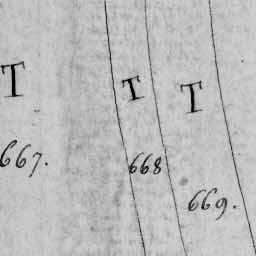 T T T
667. 668 669.